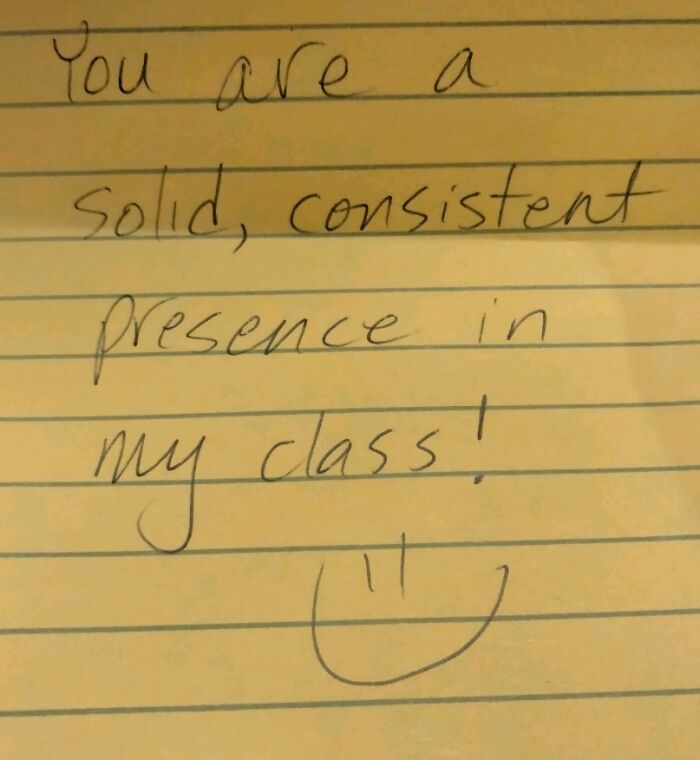 You are a
solid, consistent
presence in
my class!